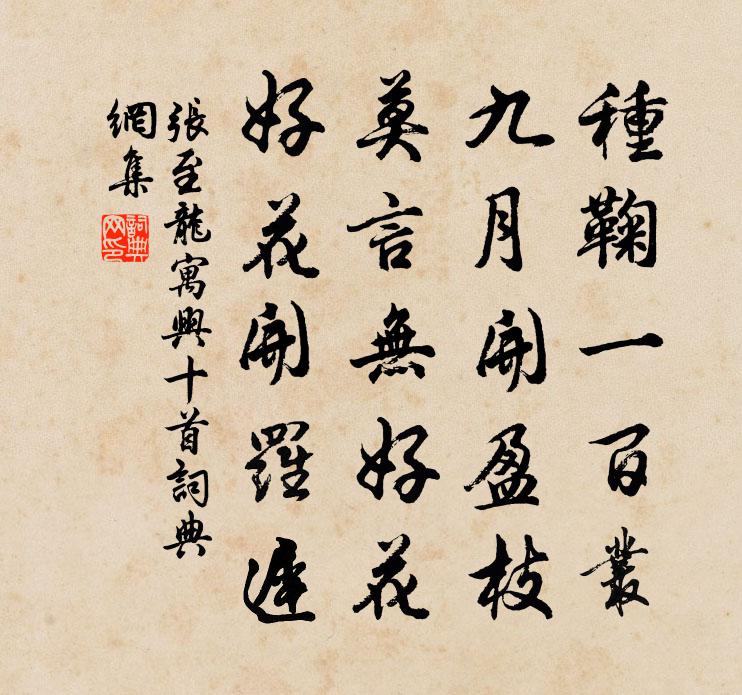 種鞠一百叢
九月開盈枝
莫言無好花
好花開羅遲
張至龍寓興十首詞典
網集
詞典網印